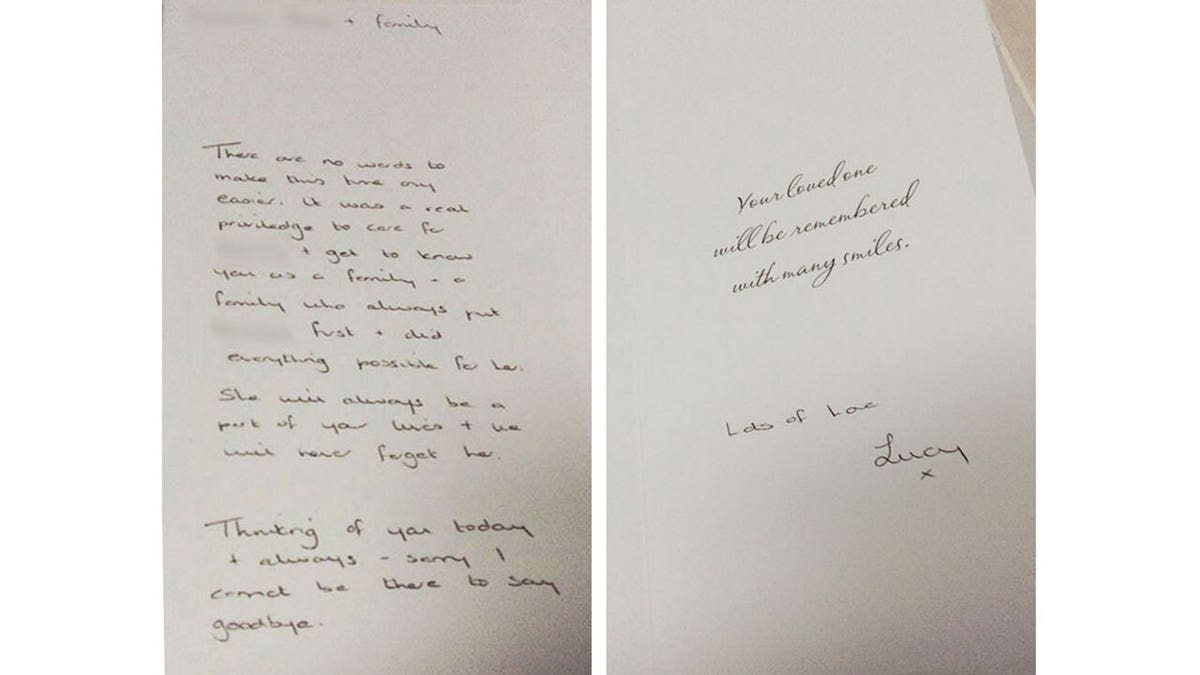 + family
There are no words to
make this time any
easier. It was a real
priviledge to care for
+ get to know
you as a family - a
family who always put
first + did
everything possible for her.
She will always be a
part of your lives + we
will never forget her.
Thinking of you today
+ always - sorry I
cannot be there to say
goodbye.
Your loved one
will be remembered
with many smiles.
Lots of Love
Lucy
x